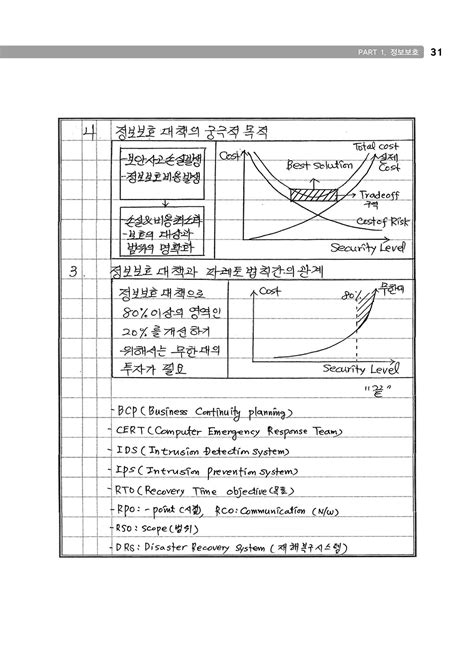 PART 1. 정보보호 31
4 정보보호 대책의 궁극적 목적
-보안사고 손실발생
-정보보호비용발생
-손실&비용최소화
-보호의 대상과
범위의 명확화
Cost
Best solution
Total cost
실제
Cost
Tradeoff
구역
Cost of Risk
Security Level
3. 정보보호 대책과 파레토 법칙간의 관계
정보보호 대책으로
80% 이상의 영역인
20%를 개선하기
위해서는 무한대의
투자가 필요
Cost
80%
무한대
Security Level
"끝"
- BCP (Business Continuity planning)
- CERT (Computer Emergency Response Team)
- IDS (Intrusion Detection System)
- IPS (Intrusion Prevention System)
- RTO (Recovery Time objective (목표)
- RPO: - point (시점), RCO: Communication (N/W)
- RSO: Scope (범위)
- DRS: Disaster Recovery System (재해복구시스템)